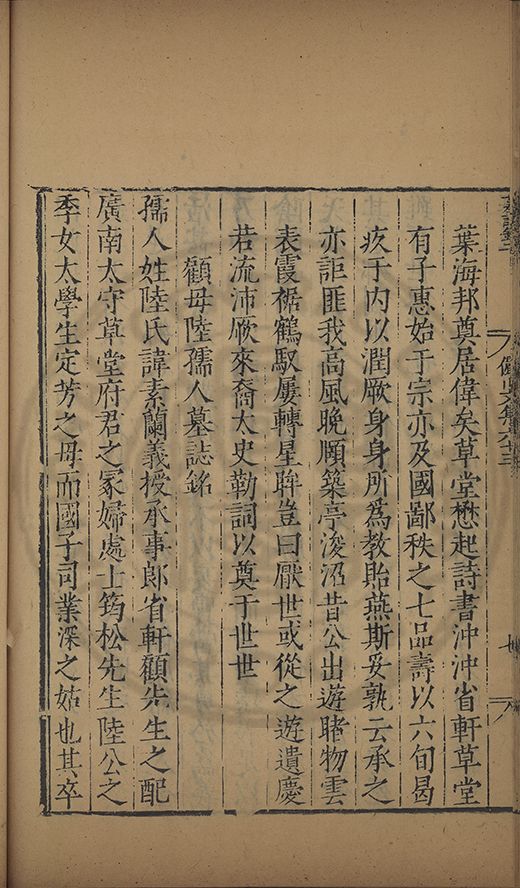 葉海邦奠居偉矣草堂懋起詩書沖沖省軒草堂
有子惠始于宗亦及國鄙秩之七品壽以六旬曷
疚于内以潤厥身身所為敎貽燕斯妥孰云承之
亦詎匪我高風晚願築亭浚沼昔公出遊睹物雲
表霞裾鶴馭屢轉星眸豈曰厭世或從之遊遺慶
若流沛厥來裔太史勒詞以奠于世世
顧母陸孺人墓誌銘
孺人姓陸氏諱素蘭義授承事郎省軒顧先生之配
廣南太守草堂府君之冢婦處士筠松先生陸公之
季女太學生定芳之母而國子司業深之姑也其卒